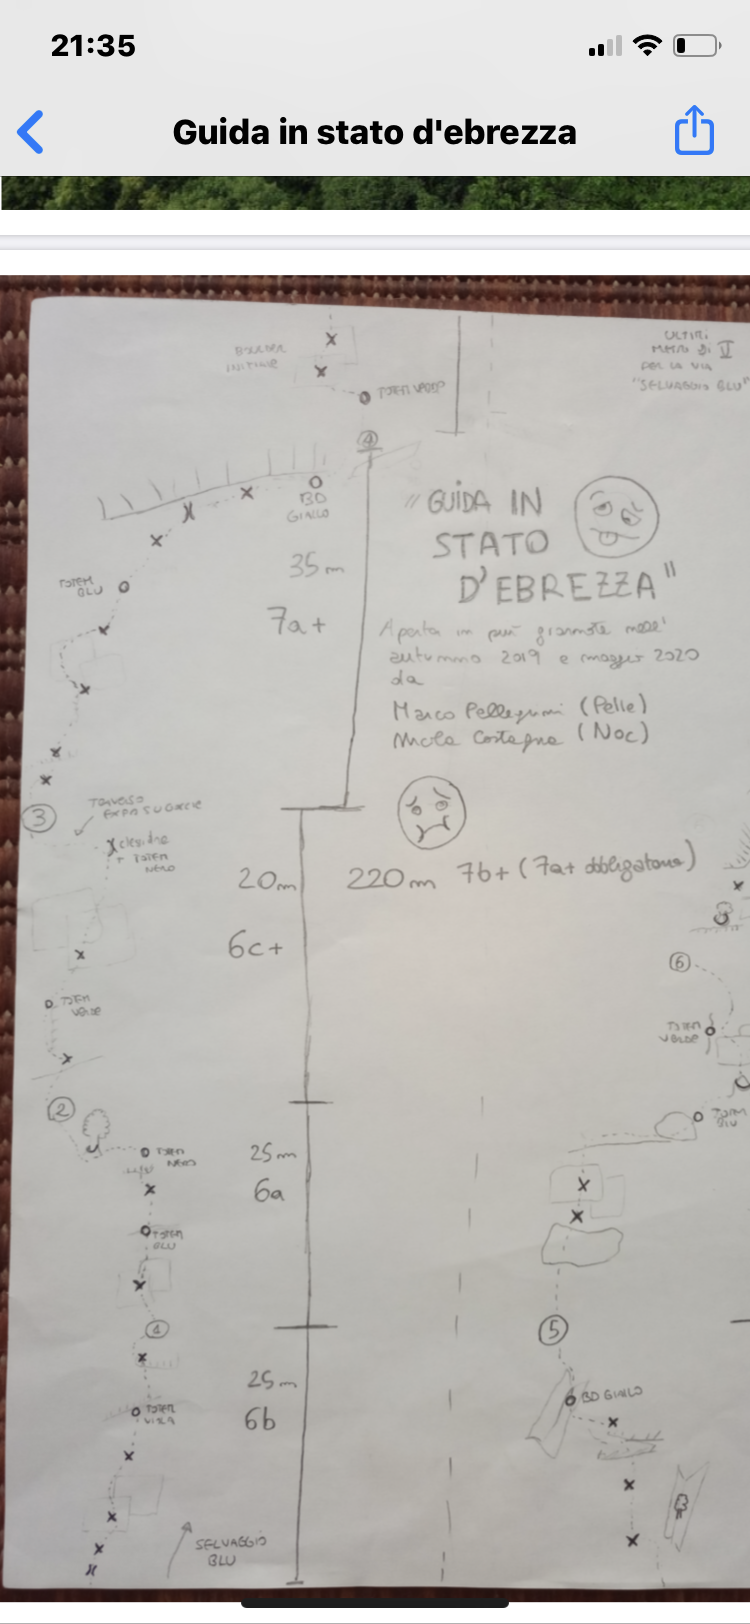 21:35
Guida in stato d'ebrezza
BOULDER
INIZIALE
TOTEM VERDE
4
BD
GIALLO
35m
7a+
TOTEM
BLU
3
TRAVERSO
EXPO SU GOCCIE
clessidra
+ TOTEM
NERO
20m
6c+
TOTEM
VERDE
2
TOTEM
NERO
25m
6a
TOTEM
BLU
1
25m
6b
TOTEM
VIOLA
SELVAGGIO
BLU
ULTIMI
METRI DI V
PER LA VIA
"SELVAGGIO BLU"
"GUIDA IN
STATO
D'EBREZZA"
Aperta in più giornate nell'
autunno 2019 e maggio 2020
da
Marco Pellegrini (Pelle)
Nicola Castagna (Noc)
220m 7b+ (7a+ obbligatorio)
6
TOTEM
VERDE
TOTEM
BLU
5
BD GIALLO